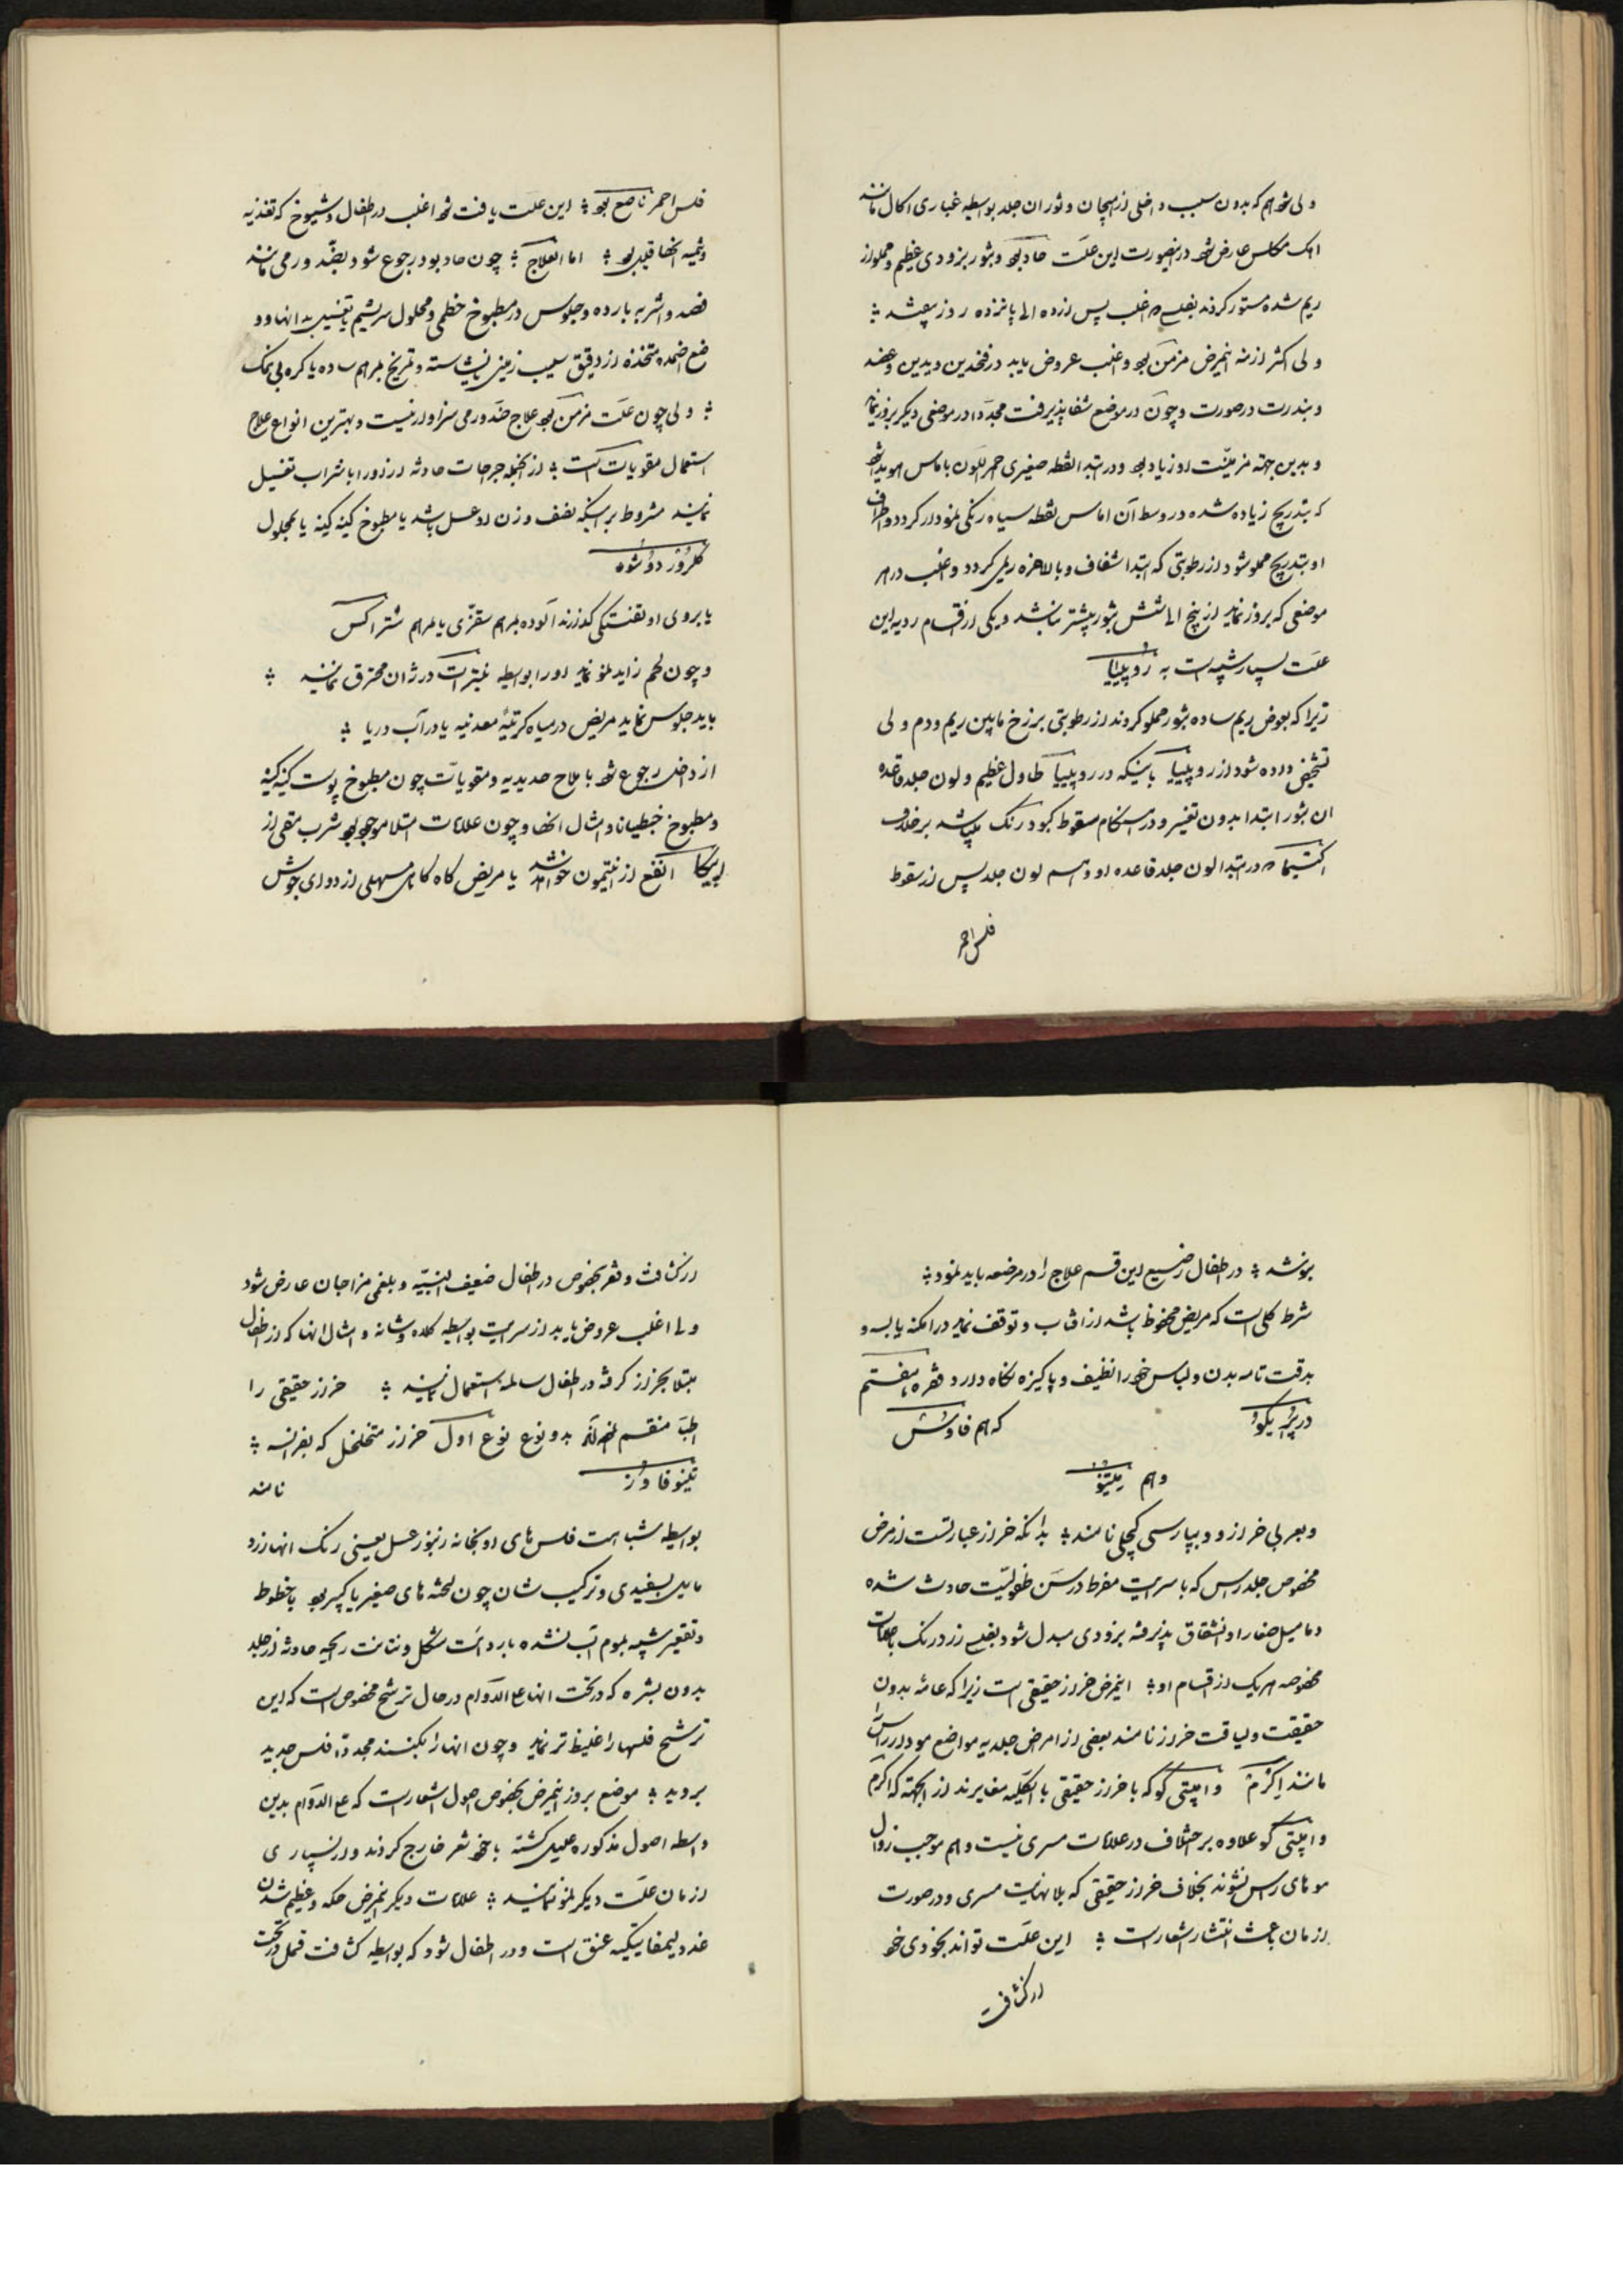 ولی شد هم که بدون سبب داخلی از هیجان و ثوران جلد بواسطه غباری اکال مانند
اهک مکلس عارض شود درینصورت این علت حاد بود و بثور بزودی عظیم و مملو از
ریم شده مستور کردند بفلسی که اغلب پس از ده الی پانزده روز بیفتند
ولی اکثر ازمنه اینمرض مزمن بود و اغلب عروض یابد در فخدین و یدین و عضد
و بندرت در صورت و چون در موضع شفا پذیرفت مجددا در موضعی دیگر بروز نماید
و بدین جهة مزمنیت او زیاد بود و در ابتدا نقطه صغیری احمر اللون با ماس هویدا شود
که بتدریج زیاده شده در وسط آن اماس نقطه سیاه رنگی نمودار کردد و اطراف
او بتدریج مملو شود از رطوبتی که ابتدا شفاف و بالاخره ریمی کردد و اغلب در هر
موضعی که بروز نماید از پنج الی شش بثور بیشتر نباشد و یکی از اقسام ردیه این
علت بسیار شبیه است به روپییا
زیرا که بعوض ریم ساده بثور مملو کردند از رطوبتی برزخ مابین ریم و دم ولی
تشخیص داده شود از روپییا باینکه در روپییا طاول عظیم و لون جلد قاعده
ان بثور ابتدا بدون تغییر و در هنگام سقوط کبود رنک میباشد برخلاف
اکتیما که در ابتدا لون جلد قاعده او و هم لون جلد پس از سقوط
فلس احمر
فلس احمر ناصع بود این علت یافت شود اغلب در اطفال و شیوخ که تغذیه
و تنمیه انها قلیل بود اما العلاج چون حاد بود رجوع شود بضد ورمی مانند
فصد و اشربه بارده و جلوس در مطبوخ خطمی و محلول سریشم یا تغسیل بدانها و و
ضع اضمده متخذه از دقیق سیب زمینی یا نشاسته و تمریخ بمرهم ساده یا کره بی نمک
ولی چون علت مزمن بود علاج ضد ورمی سزاوار نیست و بهترین انواع علاج
استعمال مقویات است از انجمله جراحات حادثه از او را با شراب تغسیل
نمایند مشروط بر اینکه نصف وزن او عسل باشد یا مطبوخ کینه کینه یا بمحلول
کلرور دوشو
یا بروی او تفتیکی کذارند آلوده بمرهم سقزی یا مرهم ستراکس
و چون لحم زاید نمو نماید او را بواسطه نیترات درژان محترق نمایند
باید جلوس نماید مریض در میاه کبرتیه معدنیه یا در آب دریا
از داخل رجوع شود باملاح حدیدیه و مقویات چون مطبوخ پوست کینه کینه
و مطبوخ جنطیانا و امثال انها و چون علامات امتلا موجود بود شرب مقیی از
اپیکا انفع از انتیمون خواهد شد یا مریض کاه کاهی مسهلی از دوای جوش
بنوشد در اطفال رضیع این قسم علاج را در مرضعه باید نمود
شرط کلی است که مریض محفوظ باشد از افتاب و توقف نماید در امکنه یابسه و
بدقت تامه بدن و لباس خود را نظیف و پاکیزه نکاه دارد فقره هفتم
در پریکو که هم فاوس
و هم میتنو
و بعربی خراز و و بپارسی کچلی نامند بدانکه خراز عبارتست از مرض
مخصوص جلد راس که با سرایت مفرط در سن طفولیت حادث شده
دمامیل صغار او انشقاق پذیرفته بزودی مبدل شود بفلس زرد رنک با صفات
مخصوصه هر یک از اقسام او اینمرض خراز حقیقی است زیرا که عامه بدون
حقیقت و لیاقت خراز نامند بعضی از امراض جلدیه مواضع مودار راس را
مانند اکزم و امپتی کو که با خراز حقیقی بالکلیه مغایرند از انجهته که اکزم
و امپتی کو علاوه بر اختلاف در علامات مسری نیست و هم موجب زوال
موهای راس نشوند بخلاف خراز حقیقی که بلانهایت مسری و در صورت
ازمان باعث انتشار اشعار است این علت تواند بخودی خود
از کثافت
از کثافت و فقر بخصوص در اطفال ضعیف البنیه و بلغمی مزاجان عارض شود
ولی اغلب عروض یابد از سرایت بواسطه کلاه و شانه و امثال انها که از اطفال
مبتلا بخراز کرفته در اطفال سالمه استعمال نمایند خراز حقیقی را
اطبا منقسم نموده اند بدو نوع نوع اول خراز متخلخل که بفرانسه
تینو فاوز نامند
بواسطه شباهت فلس های او بخانه زنبور عسل یعنی رنک انها زرد
مایل بسفیدی و ترکیب شان چون لحثه های صغیر یا کبیر بود با خطوط
و تقعیر شبیه بموم آب نشده باردائت شکل و نتانت رایحه حادثه از جلد
بدون بشره که در تحت انها علی الدوام در حال ترشح مخصوص است که این
ترشح فلسها را غلیظ تر نماید و چون انها را بکنند مجددا فلس جدید
بروید موضع بروز اینمرض بخصوص اصول اشعار است که علی الدوام بدین
واسطه اصول مذکوره علیل کشته با خود شعر خارج کردند و از بسیاری
ازمان علت دیگر نمو ننمایند علامات دیگر اینمرض حکه و عظیم شدن
غدد لیمفاتیکیه عنق است و در اطفال شود که بواسطه کثافت قمل در تحت